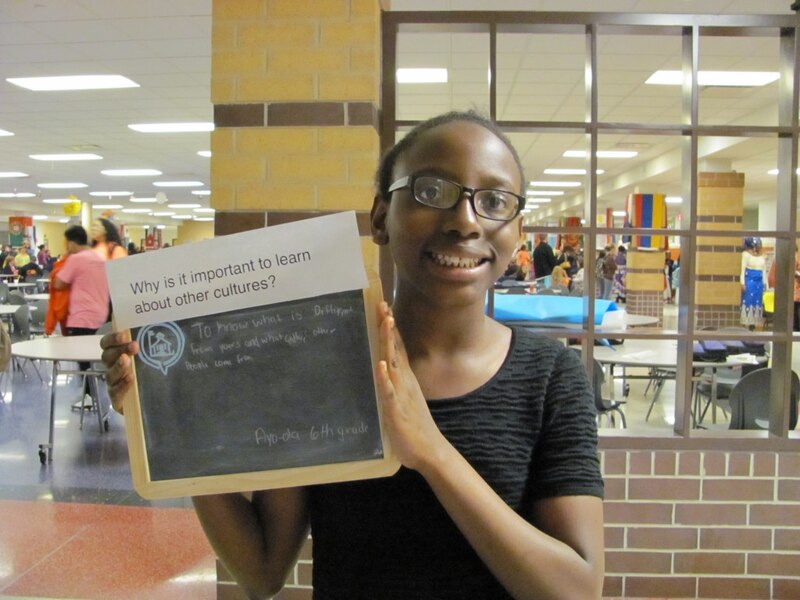 Why is it important to learn
about other cultures?
To know what is Different
from yours and what other
People come from
Ayo-ola 6th grade